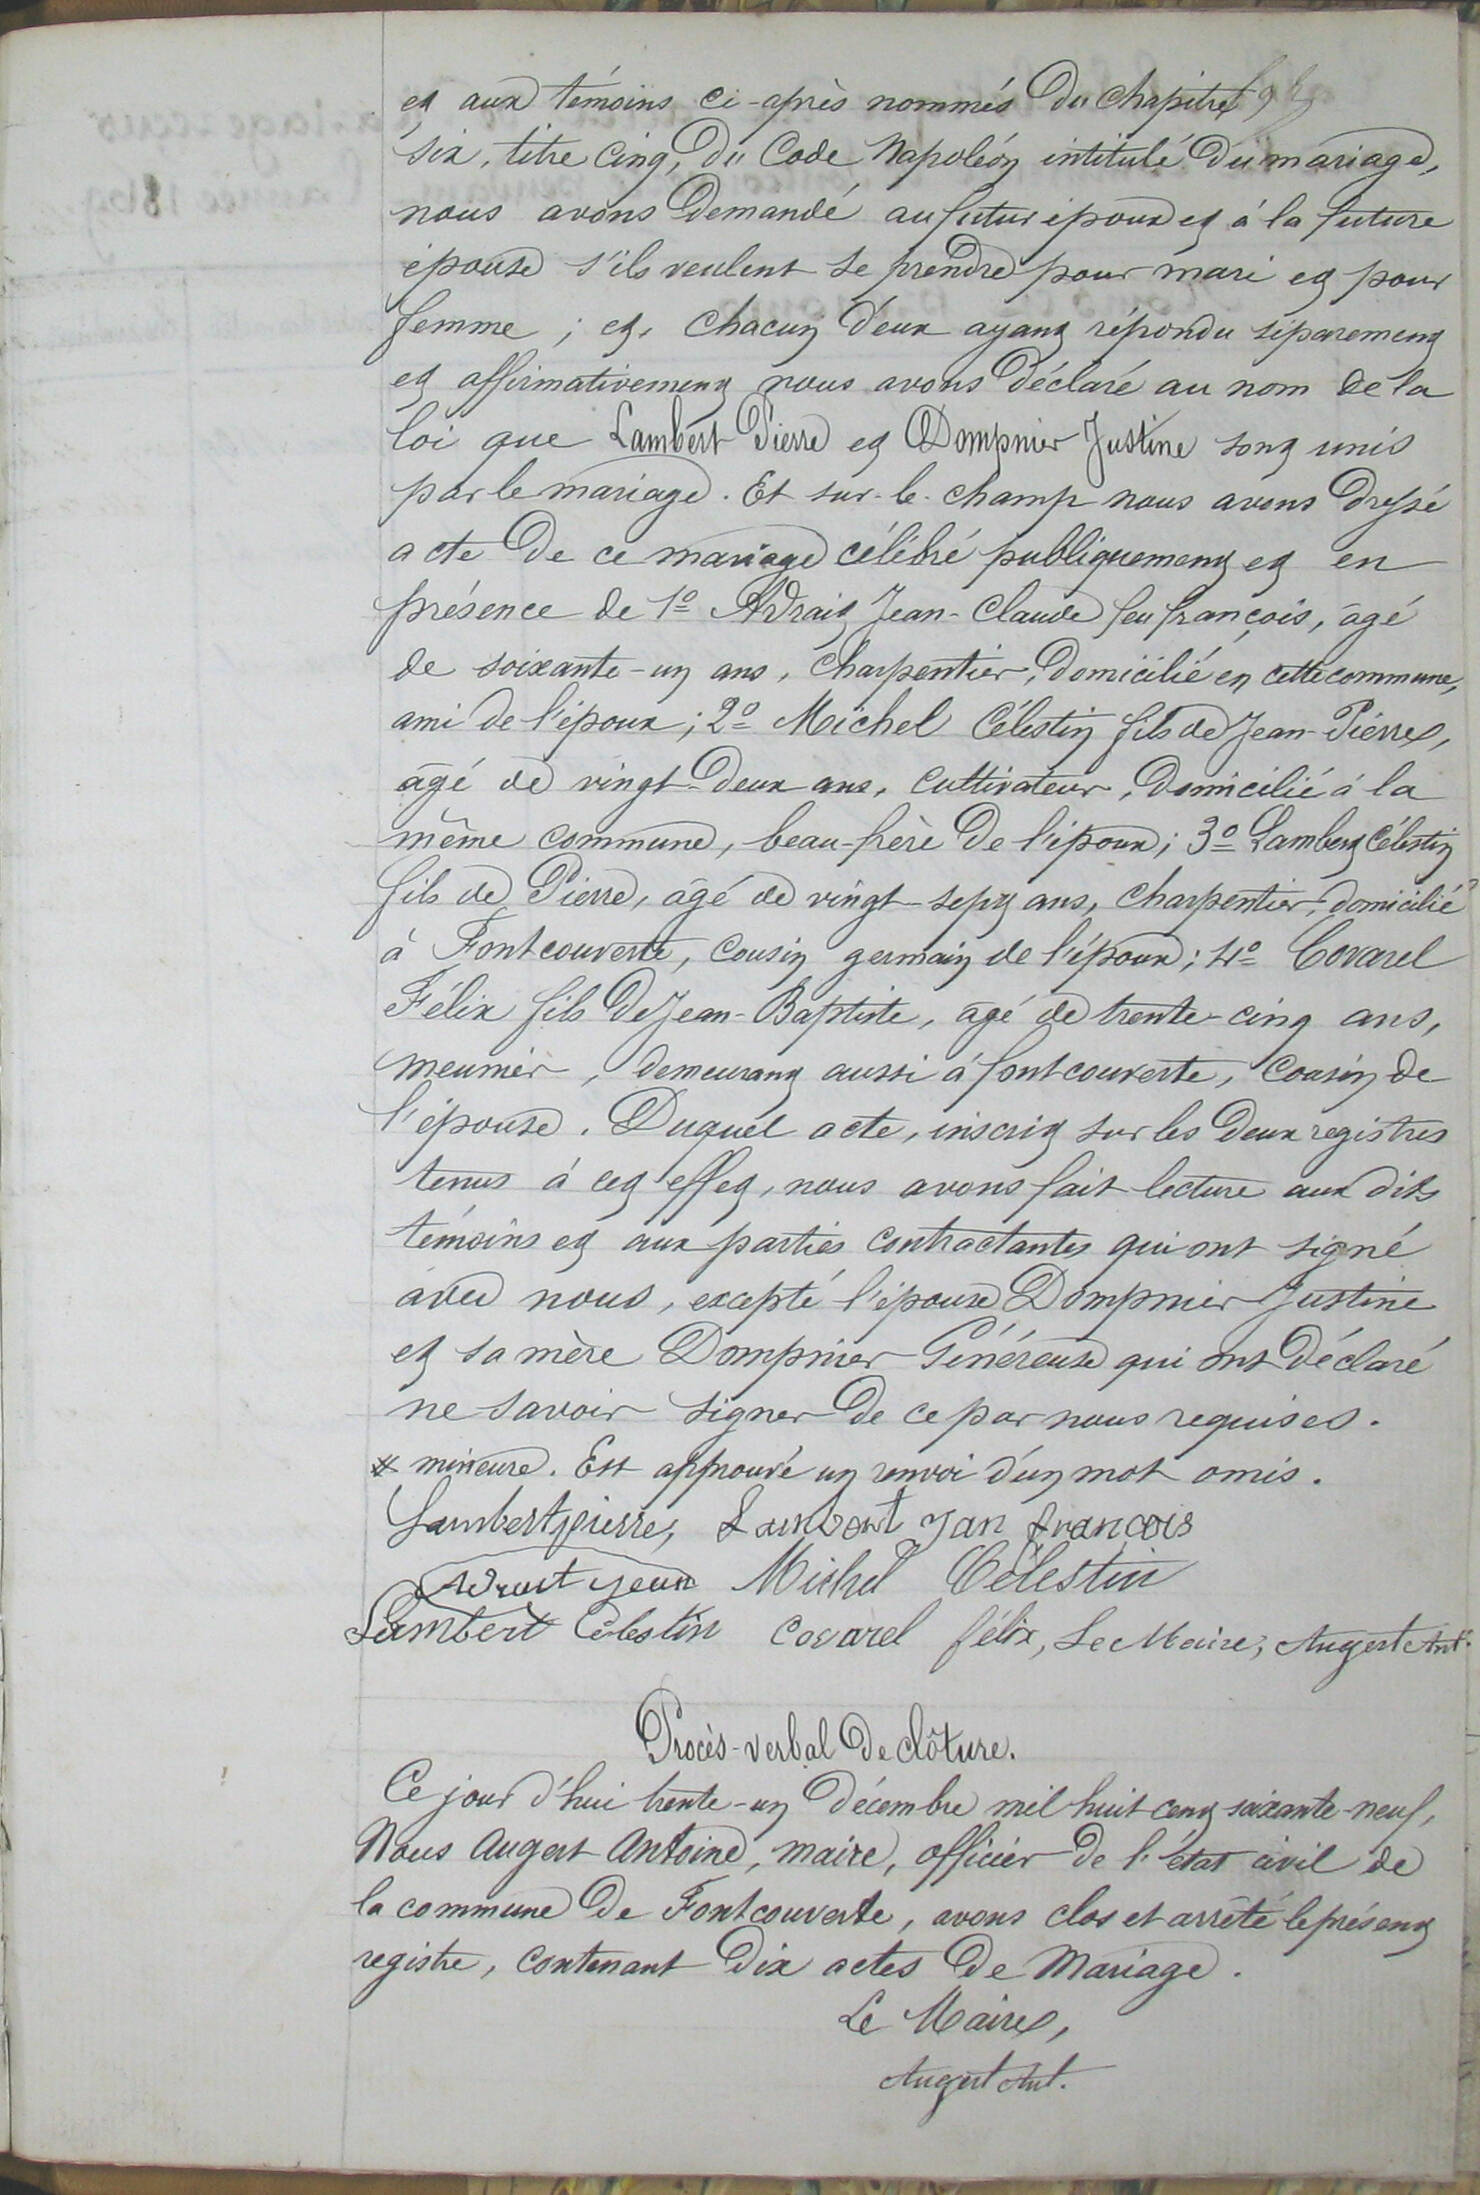 et aux témoins ci-après nommés du chapitre
six, titre cinq, du Code Napoléon intitulé du mariage,
nous avons demandé au futur époux et à la future
épouse s'ils veulent se prendre pour mari et pour
femme ; et, chacun d'eux ayant répondu séparement
et affirmativement nous avons déclaré au nom de la
loi que Lambert Pierre et Dompnier Justine sont unis
par le mariage. Et sur-le-champ nous avons dressé
acte de ce mariage célébré publiquement et en
présence de 1º Adrait Jean-Claude feu françois, âgé
de soixante-un ans, charpentier, domicilié en cette commune,
ami de l'époux ; 2º Michel Célestin fils de Jean-Pierre,
âgé de vingt-deux ans, cultivateur, domicilié à la
même commune, beau-frère de l'époux ; 3º Lambert Célestin
fils de Pierre, âgé de vingt-sept ans, charpentier, domicilié
à Fontcouverte, cousin germain de l'époux ; 4º Covarel
Félix fils de Jean-Baptiste, âgé de trente-cinq ans,
meunier, demeurant aussi à fontcouverte, cousin de
l'épouse. Duquel acte, inscrit sur les deux registres
tenus à cet effet, nous avons fait lecture aux dits
témoins et aux parties contractantes qui ont signé
avec nous, excepté l'épouse Dompnier Justine
et sa mère Dompnier Généreuse qui ont déclaré
ne savoir signer de ce par nous requises.
* mineure. Est approuvé un renvoi d'un mot omis.
Lambert pierre, Lambert Jan francois
Adrait jean Michel Célestin
Lambert Célestin Covarel félix, Le Maire, Augert Ant.
Procès-verbal de clôture.
Ce jour d'hui trente-un décembre mil huit cent soixante-neuf,
Nous Augert Antoine, maire, officier de l'état civil de
la commune de Fontcouverte, avons clos et arrêté le présent
registre, contenant dix actes de Mariage.
Le Maire,
Augert Ant.